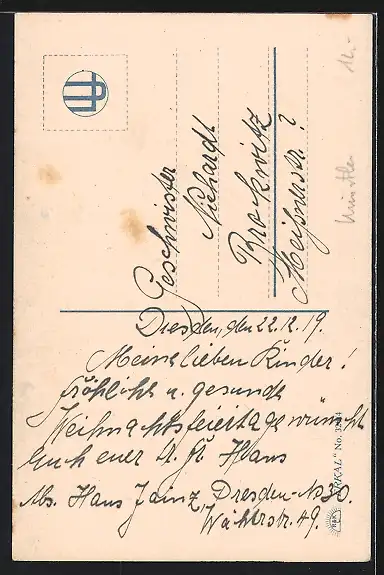 Geschwister
Niehardt
Brokwitz
Meißnerstr. ?
Künstler
12.-
Dresden, den 22.12.19.
Meine lieben Kinder!
fröhliche u. gesunde
Weihnachtsfeiertage wünscht
Euch euer Hans
Abs. Hans Dresden-
49.
"ERKAL" No.